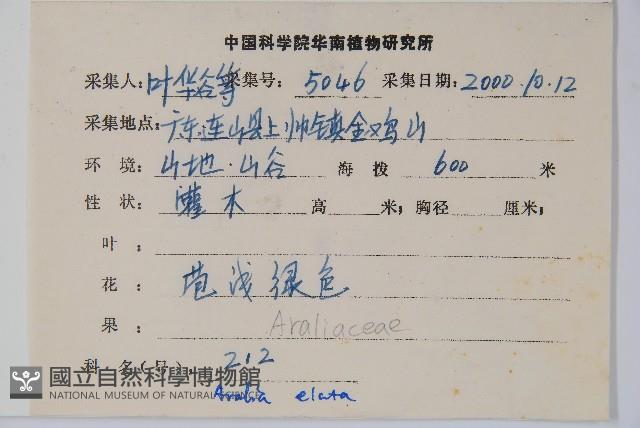 中国科学院华南植物研究所
采集人:叶华谷等 采集号: 5046 采集日期: 2000.10.12
采集地点: 广东连山县上帅镇金鸡山
环 境: 山地.山谷 海 拨 600 米
性 状: 灌木 高 米; 胸径 厘米;
叶 :
花 : 苞浅绿色
果 : Araliaceae
科 名(号): 212
國立自然科學博物館
NATIONAL MUSEUM OF NATURAL SCIENCE
Aralia elata